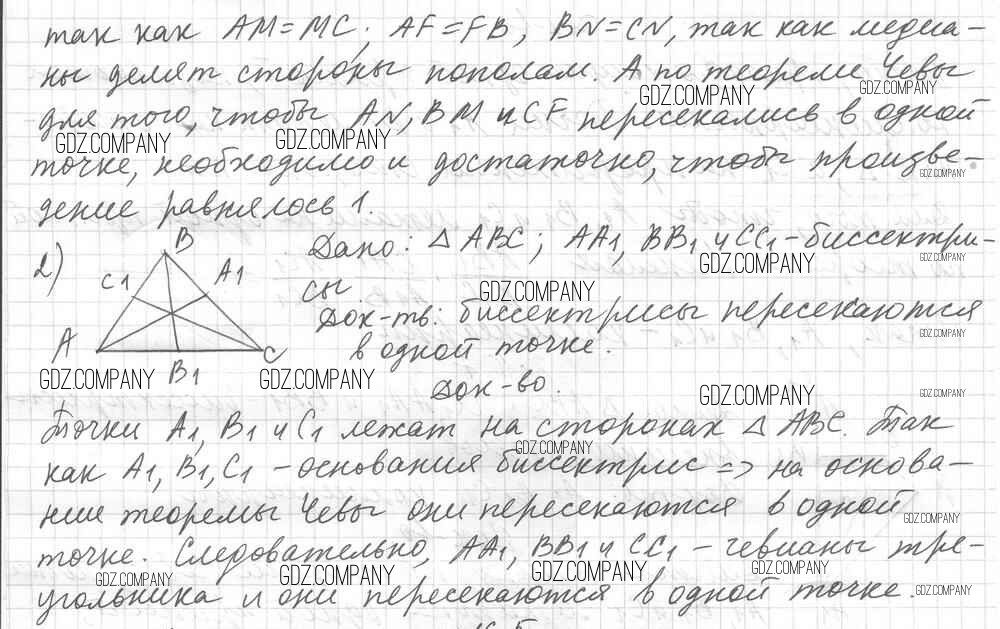 так как AM=MC; AF=FB, BN=CN, так как медиа-
ны делят стороны пополам. А по теореме Чевы
GDZ.COMPANY GDZ.COMPANY
для того, чтобы AN, BM и CF пересекались в одной
GDZ.COMPANY GDZ.COMPANY
точке, необходимо и достаточно, чтобы произве-
GDZ.COMPANY
дение равнялось 1.
2) B Дано: △ ABC; AA1, BB1 и CC1 - биссектри-
GDZ.COMPANY GDZ.COMPANY
C1 A1 сы.
GDZ.COMPANY
Док-ть: биссектрисы пересекаются
GDZ.COMPANY
A C в одной точке.
GDZ.COMPANY B1 GDZ.COMPANY
Док-во.
GDZ.COMPANY GDZ.COMPANY
Точки A1, B1 и C1 лежат на сторонах △ ABC. Так
GDZ.COMPANY
как A1, B1, C1 - основания биссектрис => на основа-
нии теоремы Чевы они пересекаются в одной
GDZ.COMPANY
точке. Следовательно, AA1, BB1 и CC1 - чевианы тре-
GDZ.COMPANY GDZ.COMPANY GDZ.COMPANY GDZ.COMPANY
угольника и они пересекаются в одной точке.
GDZ.COMPANY